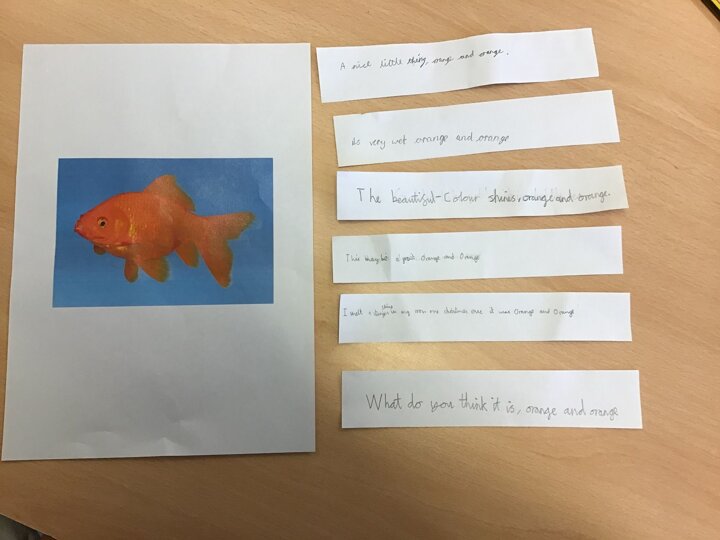 A nice little thing, orange and orange.
its very wet orange and orange
The beautiful-Colour shines, orange and orange.
This may be a Orange and Orange
I smelt a in my room one christmas eve it was Orange and Orange
What do you think it is, orange and orange